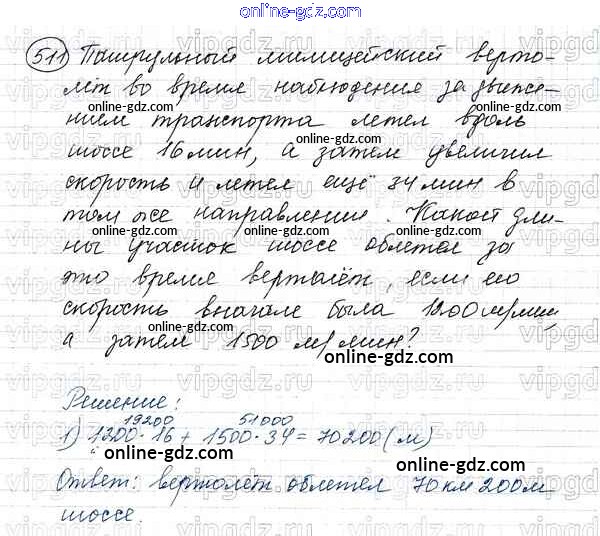 online-gdz.com
511 Патрульный милицейский верто-
лёт во время наблюдения за движе-
online-gdz.com
online-gdz.com
нием транспорта летел вдоль
online-gdz.com
шоссе 16 мин, а затем увеличил
online-gdz.com
скорость и летел ещё 34 мин в
online-gdz.com
том же направлении. Какой дли-
online-gdz.com
ны участок шоссе облетел за
online-gdz.com
это время вертолёт, если его
скорость вначале была 1200 м/мин,
online-gdz.com
а затем 1500 м/мин?
online-gdz.com
Решение:
19200 51000
1) 1200 · 16 + 1500 · 34 = 70200 (м)
online-gdz.com
Ответ: вертолёт облетел 70 км 200 м
online-gdz.com
шоссе.